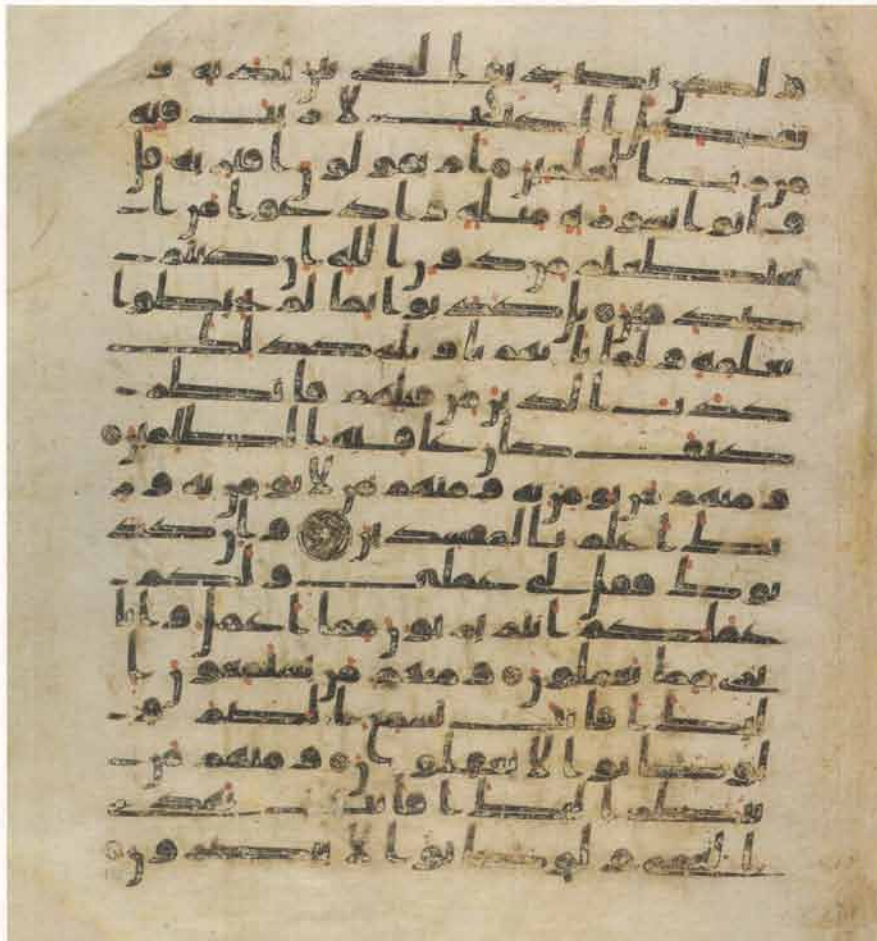 ولكن تصديق الذي بين يديه و
تفصيل الكتب لا ريب فيه
من رب العلمين ام يقولون افتريه قل
فاتوا بسورة مثله وادعوا من ا
ستطعتم من دون الله ان كنتم
صدقين بل كذبوا بما لم يحيطوا
بعلمه ولما ياتهم تاويله كذلك
كذب الذين من قبلهم فانظر
كيف كان عاقبة الظلمين
ومنهم من يومن به ومنهم من لا يومن به ور
بك اعلم بالمفسدين وان كذ
بوك فقل لي عملي ولكم
عملكم انتم بريون مما اعمل وانا
بري مما تعملون ومنهم من يستمعون ا
ليك افانت تسمع الصم و
لو كانوا لا يعقلون ومنهم من
ينظر اليك افانت تهدي
العمي ولو كانوا لا يبصرون